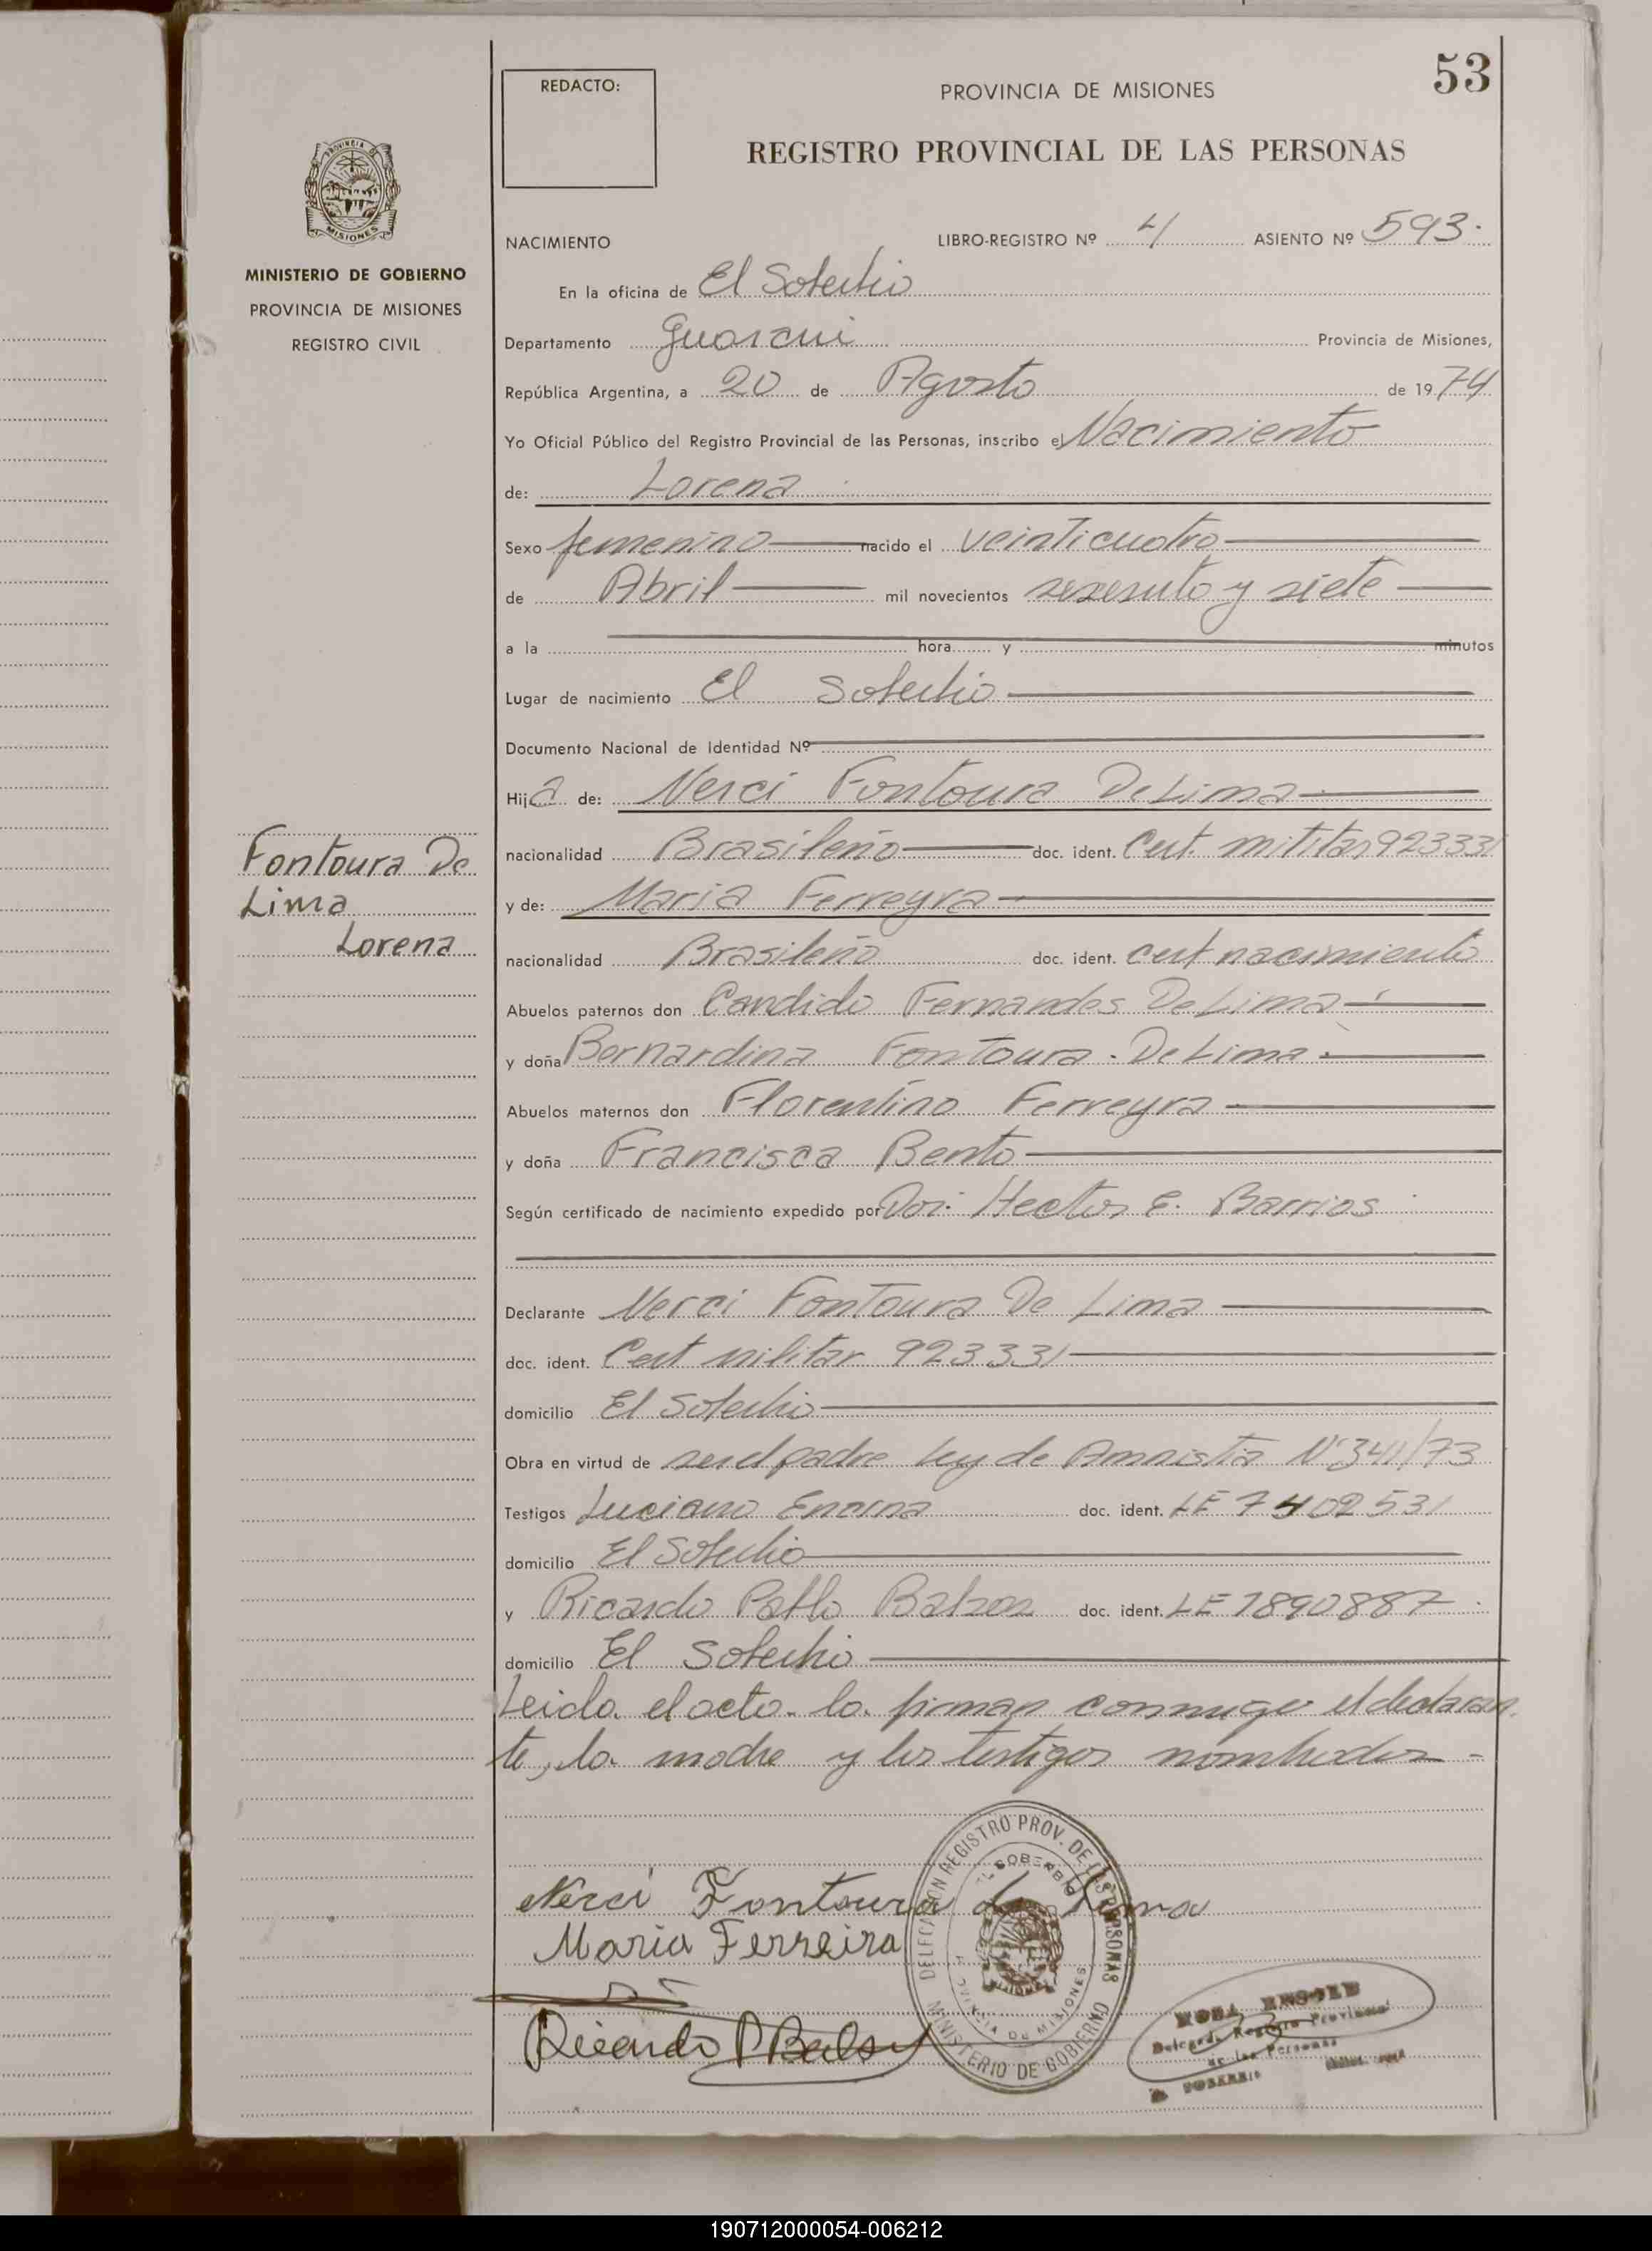 53
REDACTO:
PROVINCIA DE MISIONES
REGISTRO PROVINCIAL DE LAS PERSONAS
PROVINCIA DE
MISIONES
MINISTERIO DE GOBIERNO
PROVINCIA DE MISIONES
REGISTRO CIVIL
NACIMIENTO LIBRO-REGISTRO Nº 4 ASIENTO Nº 593.
En la oficina de El Soberbio
Departamento Guarani Provincia de Misiones,
República Argentina, a 20 de Agosto de 1974
Yo Oficial Público del Registro Provincial de las Personas, inscribo el Nacimiento
de: Lorena
Sexo femenino nacido el veinticuatro
de Abril mil novecientos sesenta y siete
a la hora y minutos
Lugar de nacimiento El Soberbio
Documento Nacional de Identidad Nº
Hija de: Nerci Fontoura De Lima
nacionalidad Brasileño doc. ident. Cert. militar 923331
y de: Maria Ferreyra
nacionalidad Brasileña doc. ident. cert nacimiento
Abuelos paternos don Candido Fernandes De Lima
y doña Bernardina Fontoura. De Lima.
Abuelos maternos don Florentino Ferreyra
y doña Francisca Bento
Según certificado de nacimiento expedido por Hector E. Barrios
Declarante Nerci Fontoura De Lima
doc. ident. Cert militar 923331
domicilio El Soberbio
Obra en virtud de ser el padre Ley de Amnistia Nº 341/73
Testigos Luciano Encina doc. ident. LE 7402531
domicilio El Soberbio
y Ricardo Pablo doc. ident. LE 7890887
domicilio El Soberbio
Leida el acta. la. firman conmigo el declaran
te, la madre y los testigos nombrados -
Fontoura De
Lima
Lorena
Nerci Fontoura de Lima
Maria Ferreira
Ricardo P
DELEGACION REGISTRO PROV. DE LAS PERSONAS
EL SOBERBIO
PROVINCIA DE MISIONES
MINISTERIO DE GOBIERNO
Registro Provincial
de las Personas
190712000054-006212